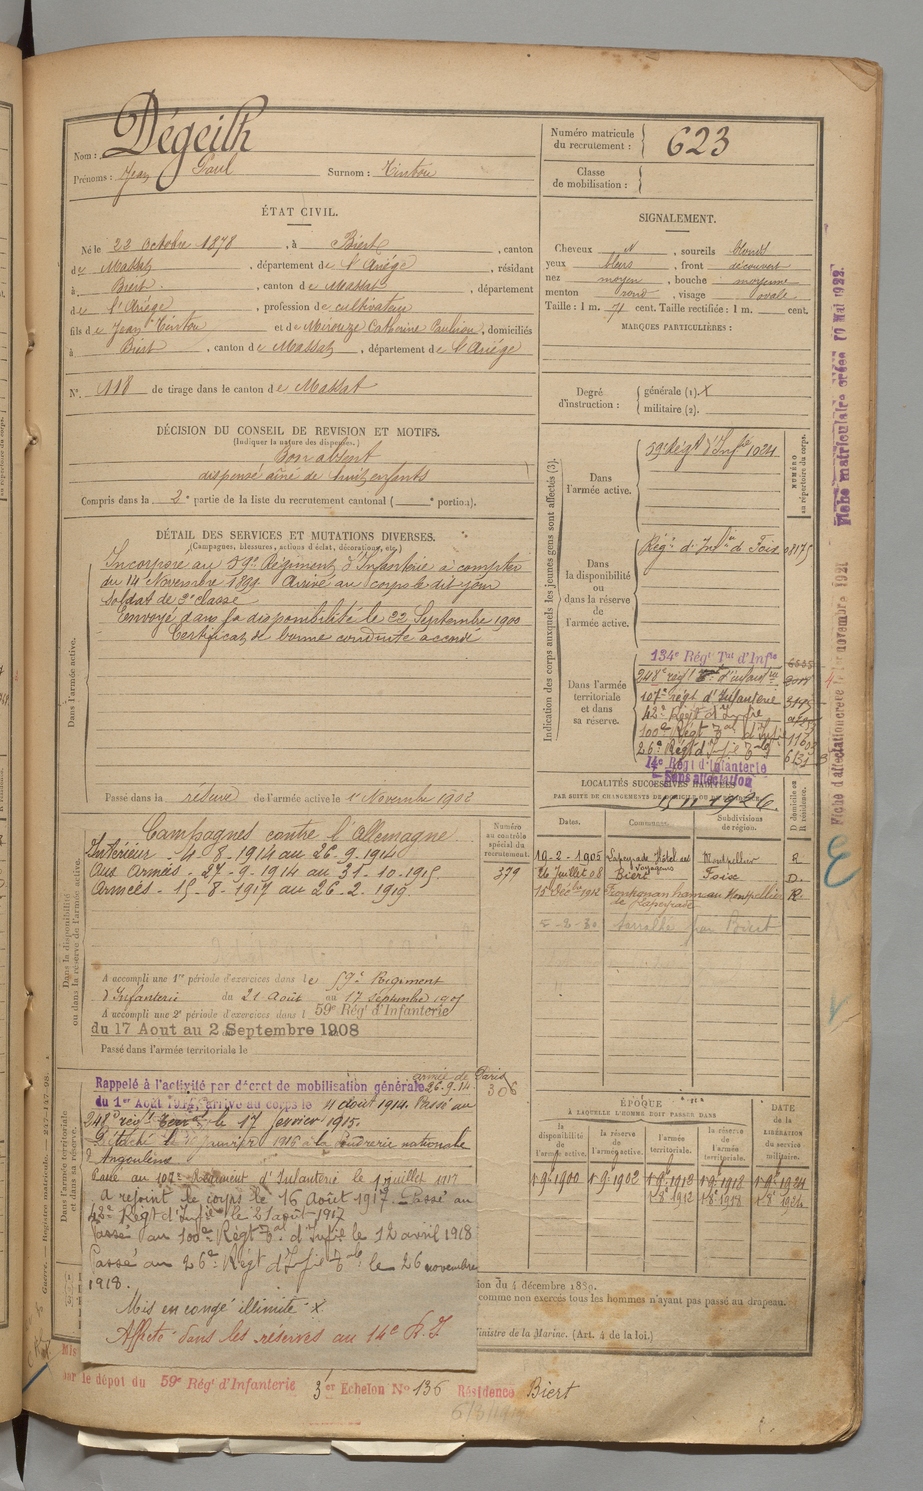 Nom : Dégeilh
Prénoms : Jean Paul Surnom : Tintou
Numéro matricule du recrutement : 623
Classe de mobilisation :
ÉTAT CIVIL.
Né le 22 Octobre 1878, à Biert, canton
de Massat, département de l'Ariége, résidant
à Biert, canton de Massat, département
de l'Ariége, profession de cultivateur
fils de Jean Tintou et de Mirouze Catherine, domiciliés
à Biert, canton de Massat, département de l'Ariége
N° 118 de tirage dans le canton de Massat
SIGNALEMENT.
Cheveux N, sourcils blonds
yeux bleus, front découvert
nez moyen, bouche moyenne
menton rond, visage ovale
Taille : 1 m. 71 cent. Taille rectifiée : 1 m. cent.
MARQUES PARTICULIÈRES :
Degré d'instruction : générale (1). X
militaire (2).
DÉCISION DU CONSEIL DE REVISION ET MOTIFS.
(Indiquer la nature des dispenses.)
Bon absent
dispensé aîné de huit enfants
Compris dans la 2e partie de la liste du recrutement cantonal ( e portion).
DÉTAIL DES SERVICES ET MUTATIONS DIVERSES.
(Campagnes, blessures, actions d'éclat, décorations, etc.)
Dans l'armée active.
Incorporé au 59e Régiment d'Infanterie à compter
du 14 Novembre 1899. Arrivé au corps le dit jour
soldat de 2e classe
Envoyé dans la disponibilité le 22 Septembre 1900
Certificat de bonne conduite accordé
Passé dans la réserve de l'armée active le 1er Novembre 1902
Indication des corps auxquels les jeunes gens sont affectés (3).
NUMÉRO au répertoire du corps.
Dans l'armée active.
59e Régt d'Infie 1024
Dans la disponibilité ou dans la réserve de l'armée active.
Régt d'Infie de Foix
Dans l'armée territoriale et dans sa réserve.
134e Régt Tal d'Infie
248e régt d'infanterie
107e Régt d'Infanterie
42e Régt d'Infie
100e Régt Tal d'Infie
26e Régt d'Infie Tal
14e Régt d'Infanterie
Sans affectation
Dans la disponibilité ou dans la réserve de l'armée active.
Campagnes contre l'Allemagne
Intérieur - 4-8-1914 au 26-9-1914
Aux armées - 27-9-1914 au 31-10-1915
Armées - 15-8-1917 au 26-2-1919
Numéro au contrôle spécial du recrutement.
379
A accompli une 1re période d'exercices dans le 59e Régiment
d'Infanterie du 21 Août au 17 Septembre
A accompli une 2e période d'exercices dans l 59e Régt d'Infanterie
du 17 Aout au 2 Septembre 1908
Passé dans l'armée territoriale le
LOCALITÉS SUCCESSIVES HABITÉES
PAR SUITE DE CHANGEMENTS DE DOMICILE OU DE RÉSIDENCE.
Dates. Communes. Subdivisions de région. D domicile ou R résidence.
19-2-1905 Lapeyrade Hôtel des Voyageurs Montpellier R
26 Juillet 08 Biert Foix D.
15 Décbre 1912 Frontignan hameau de Lapeyrade Montpellier R.
Dans l'armée territoriale et dans sa réserve.
Rappelé à l'activité par décret de mobilisation générale
du 1er Août 1914, arrivé au corps le 4 août 1914. Passé au
armée de Paris 26.9.14
306
248e régt le 17 février 1915.
Détaché le janvier 1916 à la poudrerie nationale
d'Angoulême
Passé au 107e Régiment d'Infanterie le 1 juillet 1917
A rejoint le corps le 16 Août 1917. Passé au
42e Régt d'Infie le 21 août 1917
Passé au 100e Régt Tal d'Infie le 12 avril 1918
Passé au 26e Régt d'Infie Tal le 26 novembre
1918.
Mis en congé illimité x
Affecté dans les réserves au 14e R.I.
ÉPOQUE
À LAQUELLE L'HOMME DOIT PASSER DANS
la disponibilité de l'armée active. la réserve de l'armée active. l'armée territoriale. la réserve de l'armée territoriale. DATE de la LIBÉRATION du service militaire.
1er 9bre 1900 1er 9bre 1902 1er 9bre 1912 1er 9bre 1918 1er 9bre 1924
1er 8bre 1912 1er 8bre 1918 1er 8bre 1924
ion du 4 décembre 1889.
comme non exercés tous les hommes n'ayant pas passé au drapeau.
Ministre de la Marine. (Art. 4 de la loi.)
par le dépôt du 59e Régt d'Infanterie 3er Echelon No 136 Résidence Biert
Fiche matriculaire créée 19 Mai 1922.
Fiche d'affectation créée 1er novembre 1921